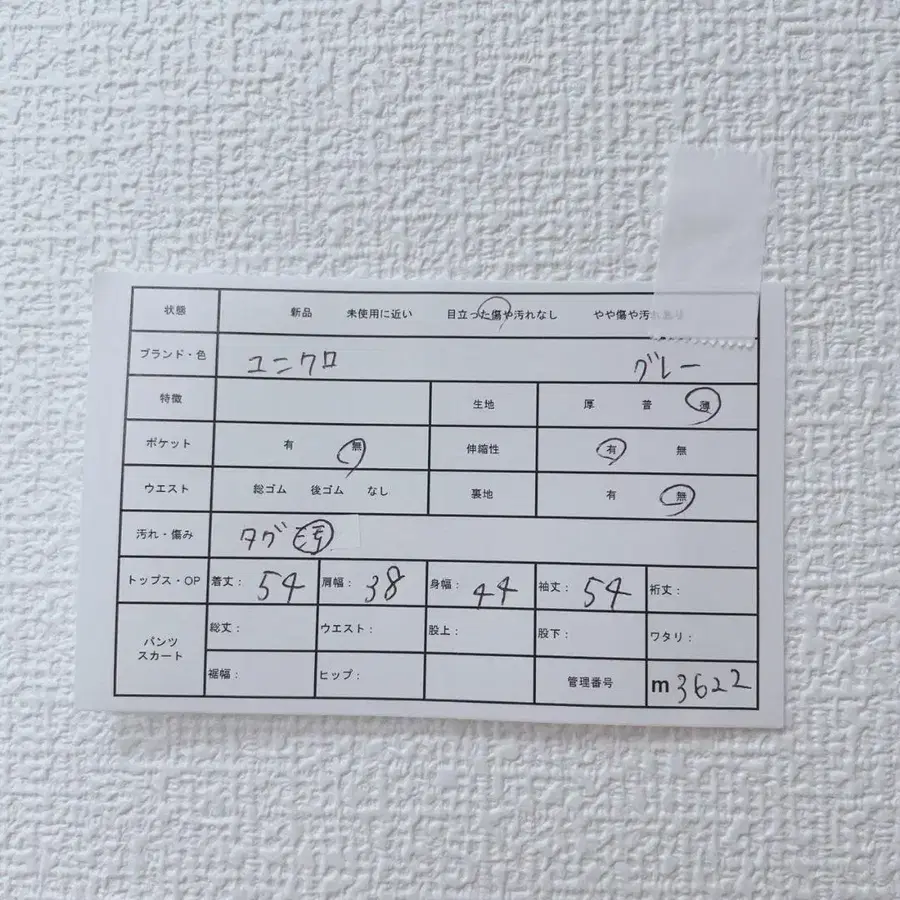 状態 新品 未使用に近い 目立った傷や汚れなし やや傷や汚れあり
ブランド・色 ユニクロ グレー
特徴 生地 厚 普 薄
ポケット 有 無 伸縮性 有 無
ウエスト 総ゴム 後ゴム なし 裏地 有 無
汚れ・傷み タグ汚
トップス・OP 着丈: 54 肩幅: 38 身幅: 44 袖丈: 54 裄丈:
パンツ スカート 総丈: ウエスト: 股上: 股下: ワタリ:
裾幅: ヒップ: 管理番号 m3622